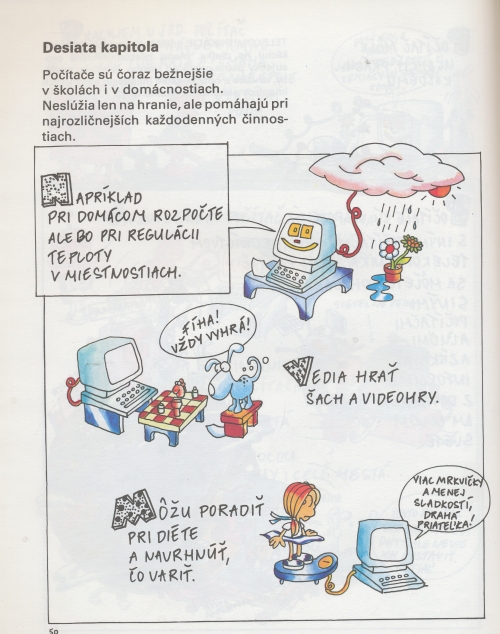 Desiata kapitola
Počítače sú čoraz bežnejšie
v školách i v domácnostiach.
Neslúžia len na hranie, ale pomáhajú pri
najrozličnejších každodenných činnos-
tiach.
NAPRÍKLAD
PRI DOMÁCOM ROZPOČTE
ALEBO PRI REGULÁCII
TEPLOTY
V MIESTNOSTIACH.
FÍHA!
VŽDY VYHRÁ!
VEDIA HRAŤ
ŠACH A VIDEOHRY.
MÔŽU PORADIŤ
PRI DIÉTE
A NAVRHNÚŤ,
ČO VARIŤ.
VIAC MRKVIČKY
A MENEJ
SLADKOSTÍ,
DRAHÁ
PRIATEĽKA!
50